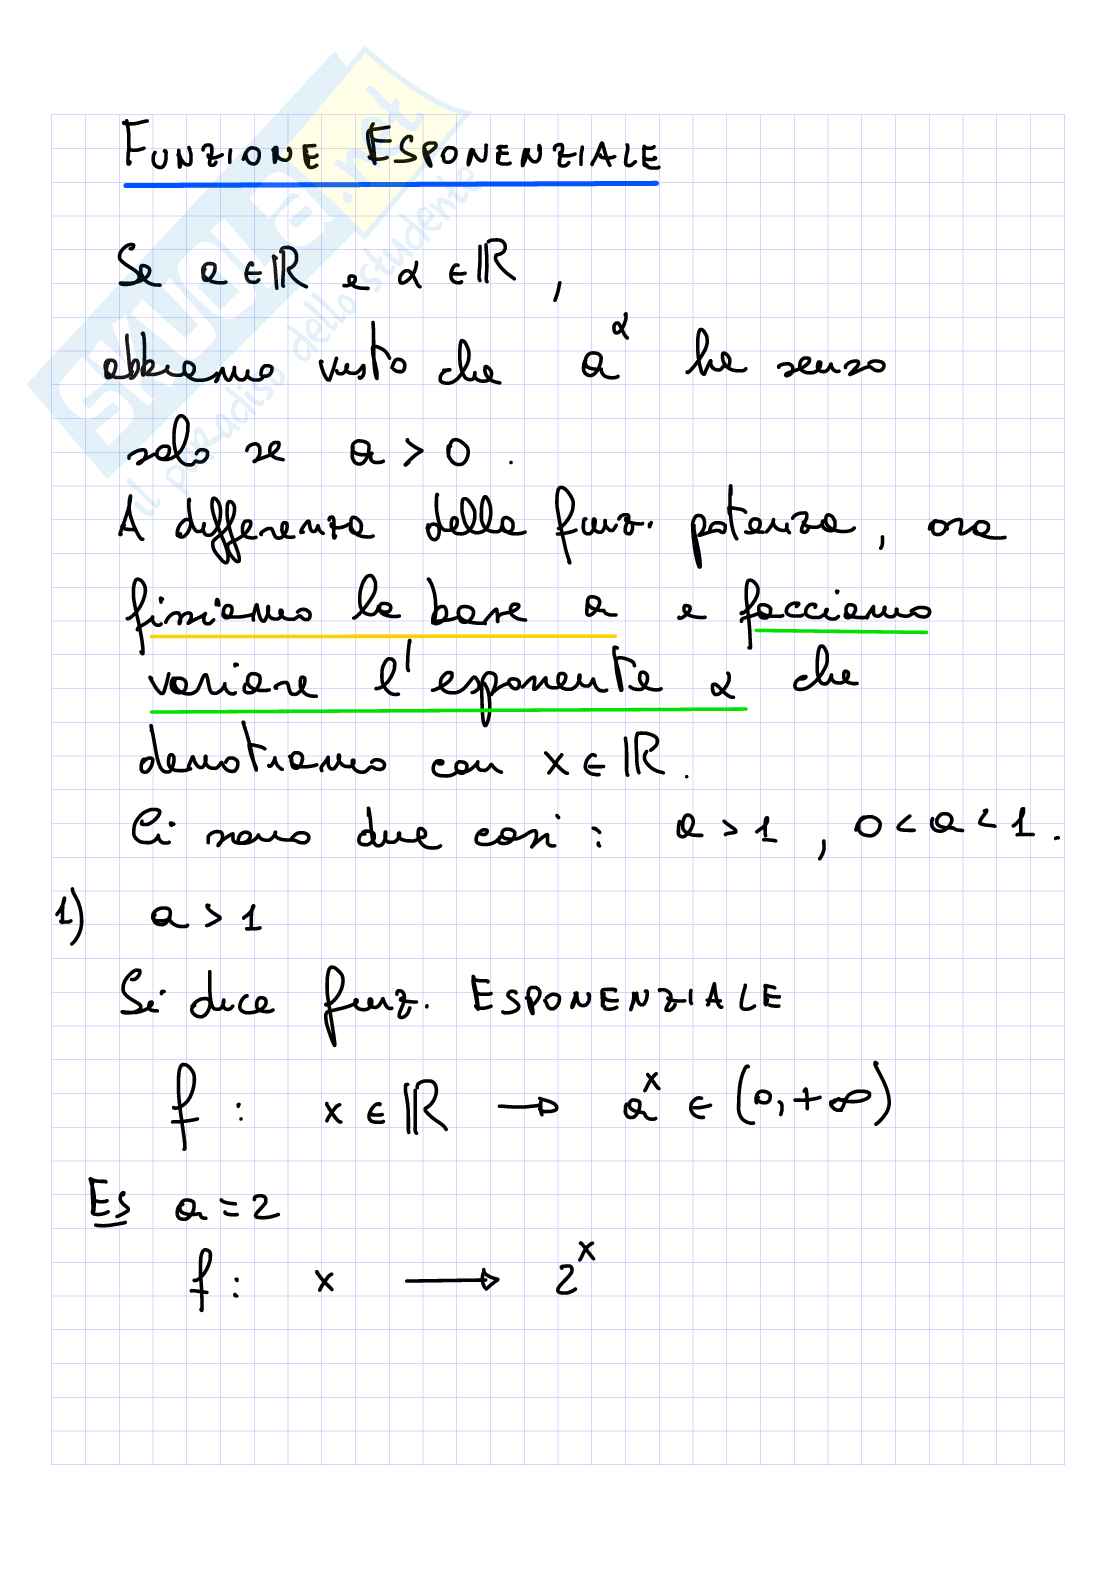 FUNZIONE ESPONENZIALE
Se a ∈ ℝ e α ∈ ℝ ,
abbiamo visto che a^α ha senso
solo se a > 0 .
A differenza della funz. potenza, ora
fissiamo la base a e facciamo
variare l'esponente α che
denotiamo con x ∈ ℝ .
Ci sono due casi : a > 1 , 0 < a < 1 .
1) a > 1
Si dice funz. ESPONENZIALE
f : x ∈ ℝ → a^x ∈ (0, +∞)
Es a = 2
f : x → 2^x
SKUOLA.net
il paradiso dello studente